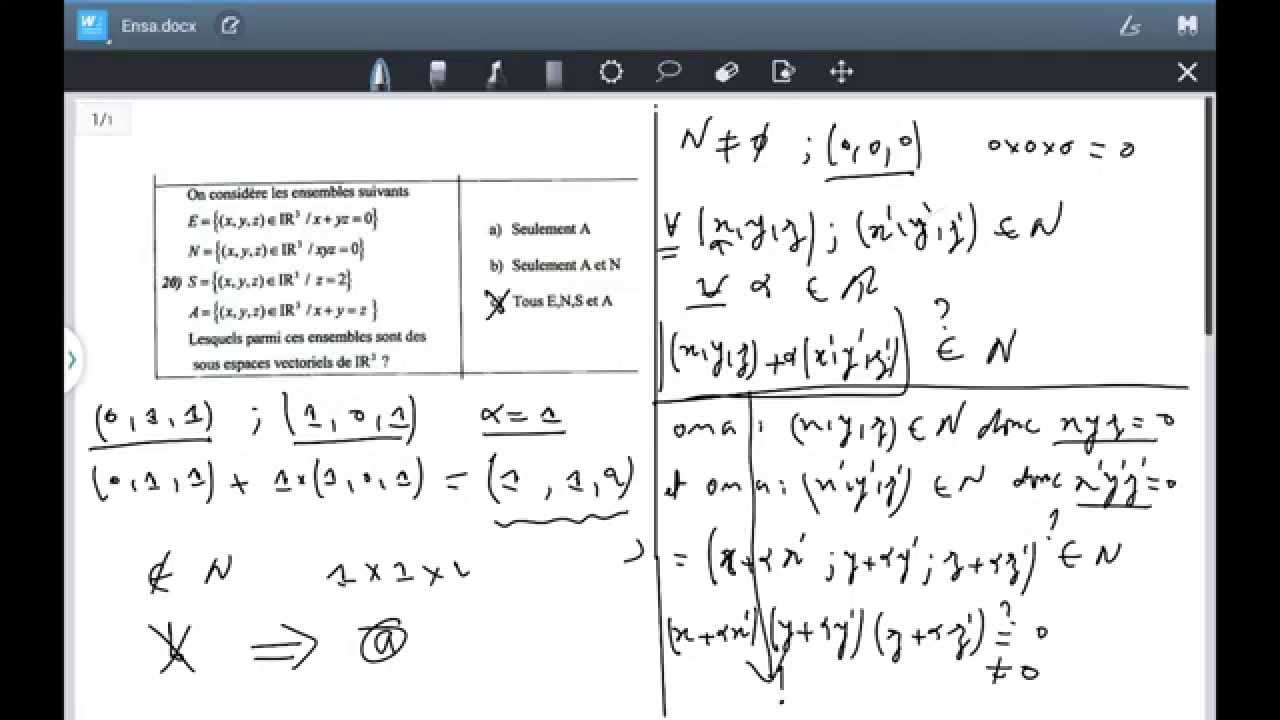 Ensa.docx
1/1
On considère les ensembles suivants
E = {(x,y,z) ∈ IR³ / x + yz = 0}
N = {(x,y,z) ∈ IR³ / xyz = 0}
20) S = {(x,y,z) ∈ IR³ / z = 2}
A = {(x,y,z) ∈ IR³ / x + y = z }
Lesquels parmi ces ensembles sont des
sous espaces vectoriels de IR³ ?
a) Seulement A
b) Seulement A et N
Tous E,N,S et A
(0,1,1) ; (1,0,1) α = 1
(0,1,1) + 1×(1,0,1) = (1,1,2)
∉ N 1×1×2
⇒ a
N ≠ ∅ ; (0,0,0) 0×0×0 = 0
∀ (x,y,z) ; (x',y',z') ∈ N
∀ α ∈ IR
(x,y,z) + α(x',y',z') ∈? N
on a : (x,y,z) ∈ N donc xyz = 0
et on a : (x',y',z') ∈ N donc x'y'z' = 0
= (x+αx' ; y+αy' ; z+αz') ∈? N
(x+αx')(y+αy')(z+αz') =? 0
≠ 0